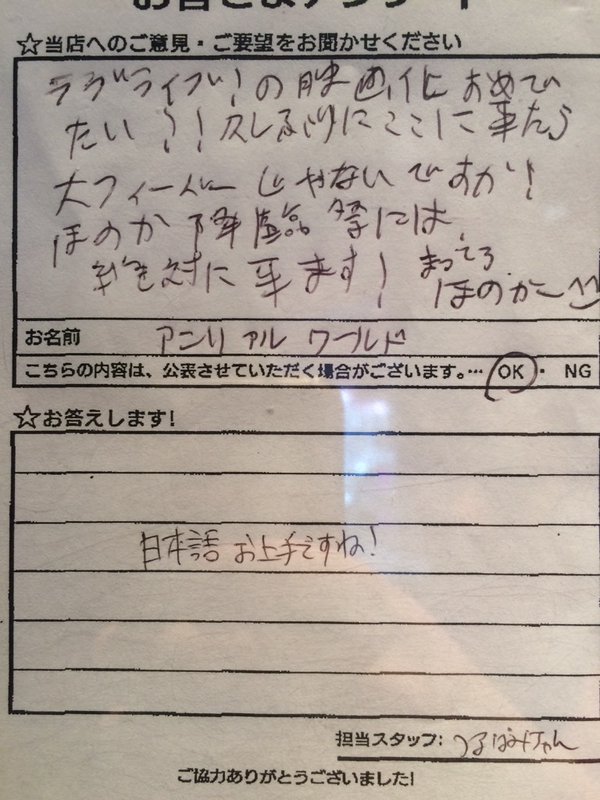 お客さまアンケート
☆当店へのご意見・ご要望をお聞かせください
ラブライブ!の映画化におめで
たい?!久しぶりにここに来たら
大フィーバーじゃないですか!
ほのか降臨祭には、
絶対に来ます! まってろ
ほのかー^^
お名前 アンリアルワールド
こちらの内容は、公表させていただく場合がございます。… OK・ NG
☆お答えします!
日本語お上手ですね!
担当スタッフ: つるはみちゃん
ご協力ありがとうございました!